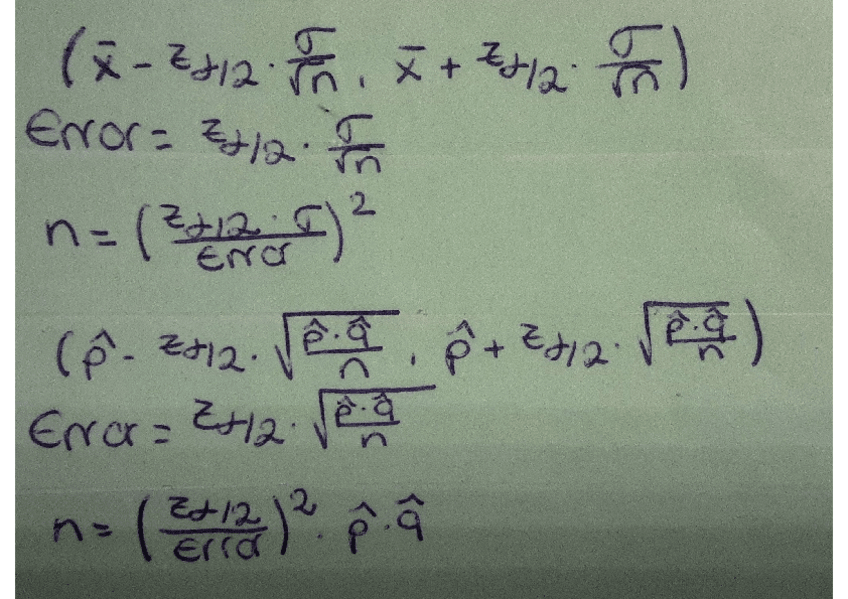 (x̄ - z α/2 · σ/√n , x̄ + z α/2 · σ/√n)
Error = z α/2 · σ/√n
n = (z α/2 · σ / Error)²
(p̂ - z α/2 · √(p̂·q̂/n) , p̂ + z α/2 · √(p̂·q̂/n))
Error = z α/2 · √(p̂·q̂/n)
n = (z α/2 / Error)² · p̂ · q̂